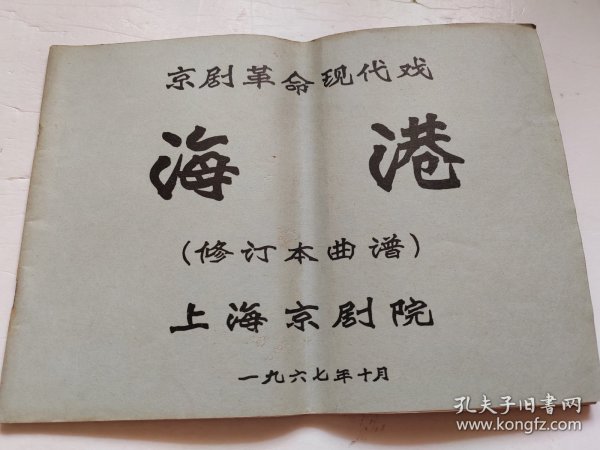 京剧革命现代戏
海港
(修订本曲谱)
上海京剧院
一九六七年十月
孔夫子旧书网
www.kongfz.com